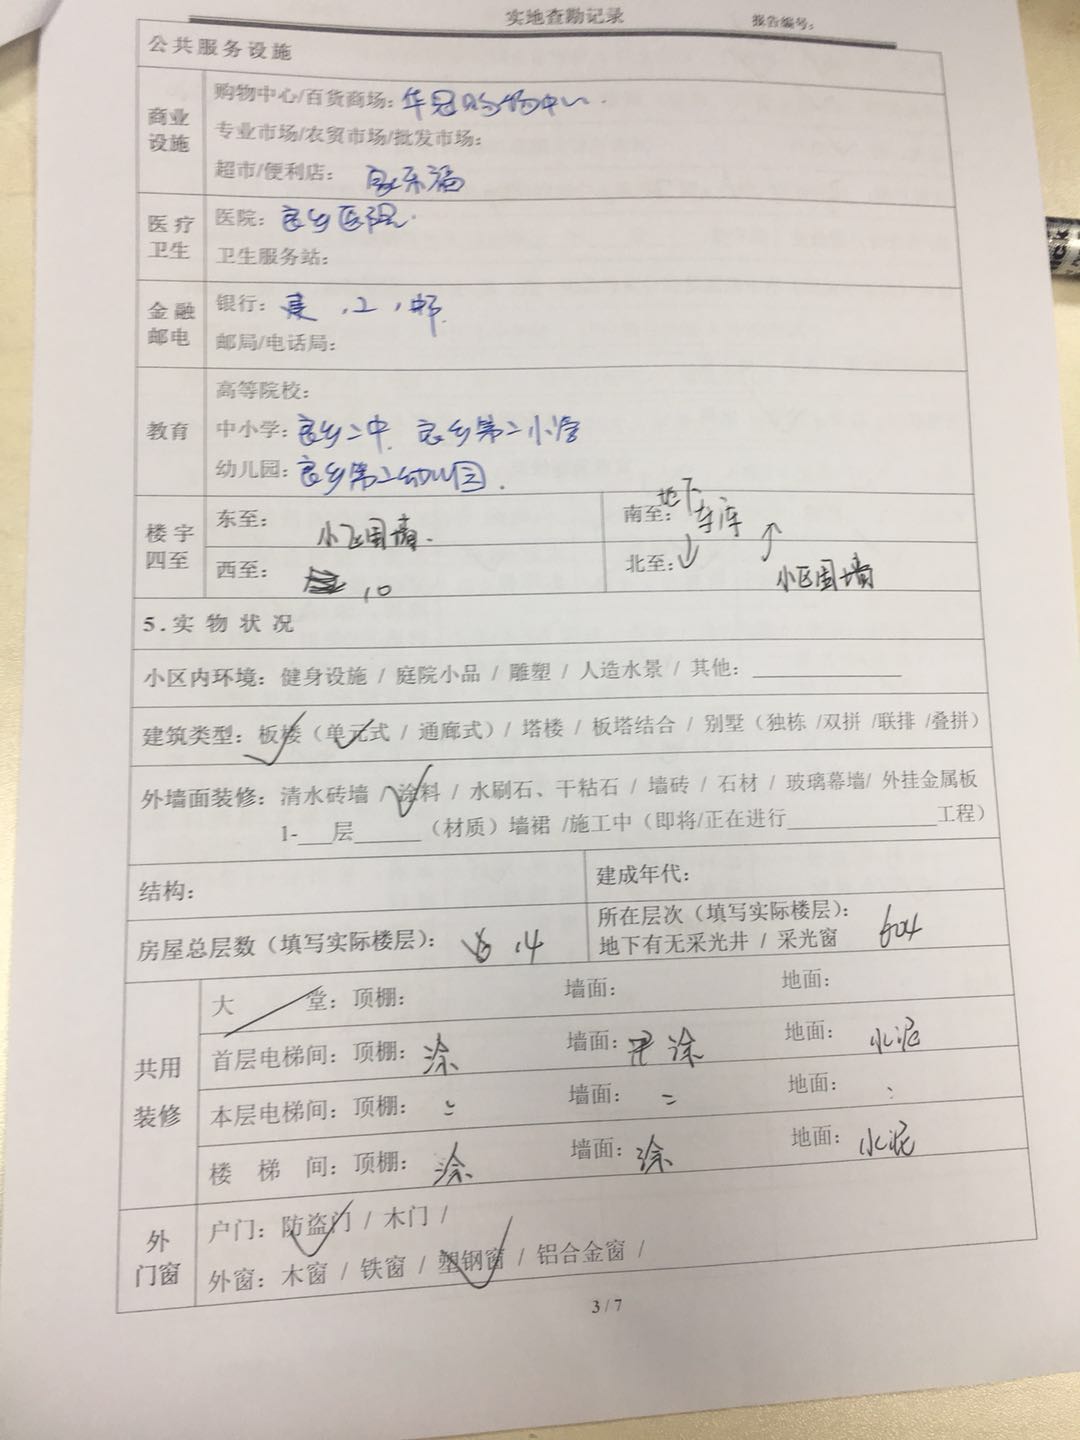 实地查勘记录 报告编号:
公共服务设施
商业设施
购物中心/百货商场: 华冠购物中心.
专业市场/农贸市场/批发市场:
超市/便利店: 家乐福
医疗卫生
医院: 良乡医院.
卫生服务站:
金融邮电
银行: 建,工,邮.
邮局/电话局:
教育
高等院校:
中小学: 良乡二中. 良乡第二小学
幼儿园: 良乡第二幼儿园.
楼宇四至
东至: 小区围墙. 南至: 地下车库
西至: 10 北至: 小区围墙
5.实物状况
小区内环境: 健身设施 / 庭院小品 / 雕塑 / 人造水景 / 其他: ____________
建筑类型: 板楼 (单元式 / 通廊式) / 塔楼 / 板塔结合 / 别墅 (独栋 /双拼 /联排 /叠拼)
外墙面装修: 清水砖墙 / 涂料 / 水刷石、干粘石 / 墙砖 / 石材 / 玻璃幕墙/ 外挂金属板
1-___层______ (材质) 墙裙 /施工中 (即将/正在进行____________工程)
结构: 建成年代:
房屋总层数 (填写实际楼层): 14 所在层次 (填写实际楼层): 604
地下有无采光井 / 采光窗
共用装修
大 堂: 顶棚: 墙面: 地面:
首层电梯间: 顶棚: 涂 墙面: 涂 地面: 水泥
本层电梯间: 顶棚: 墙面: 地面:
楼 梯 间: 顶棚: 涂 墙面: 涂 地面: 水泥
外门窗
户门: 防盗门 / 木门 /
外窗: 木窗 / 铁窗 / 塑钢窗 / 铝合金窗 /
3 / 7